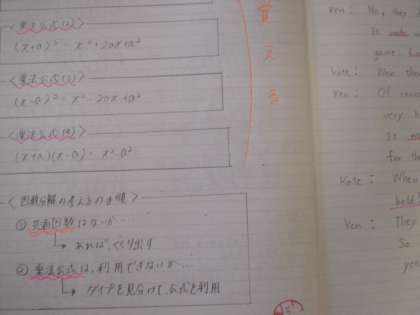 <乗法公式(2)>
(x+a)² = x²+2ax+a²
<乗法公式(3)>
(x-a)² = x²-2ax+a²
<乗法公式(4)>
(x+a)(x-a) = x²-a²
<因数分解の考え方の手順>
① 共通因数はないか…
→ あれば、くくり出す
② 乗法公式は、利用できないか…
→ タイプを見分けて、公式を利用
Ken: No, they
It
game.
Kate: Who the
Ken: Of
very
It
for th
Kate: When
held
Ken: They
So
yea